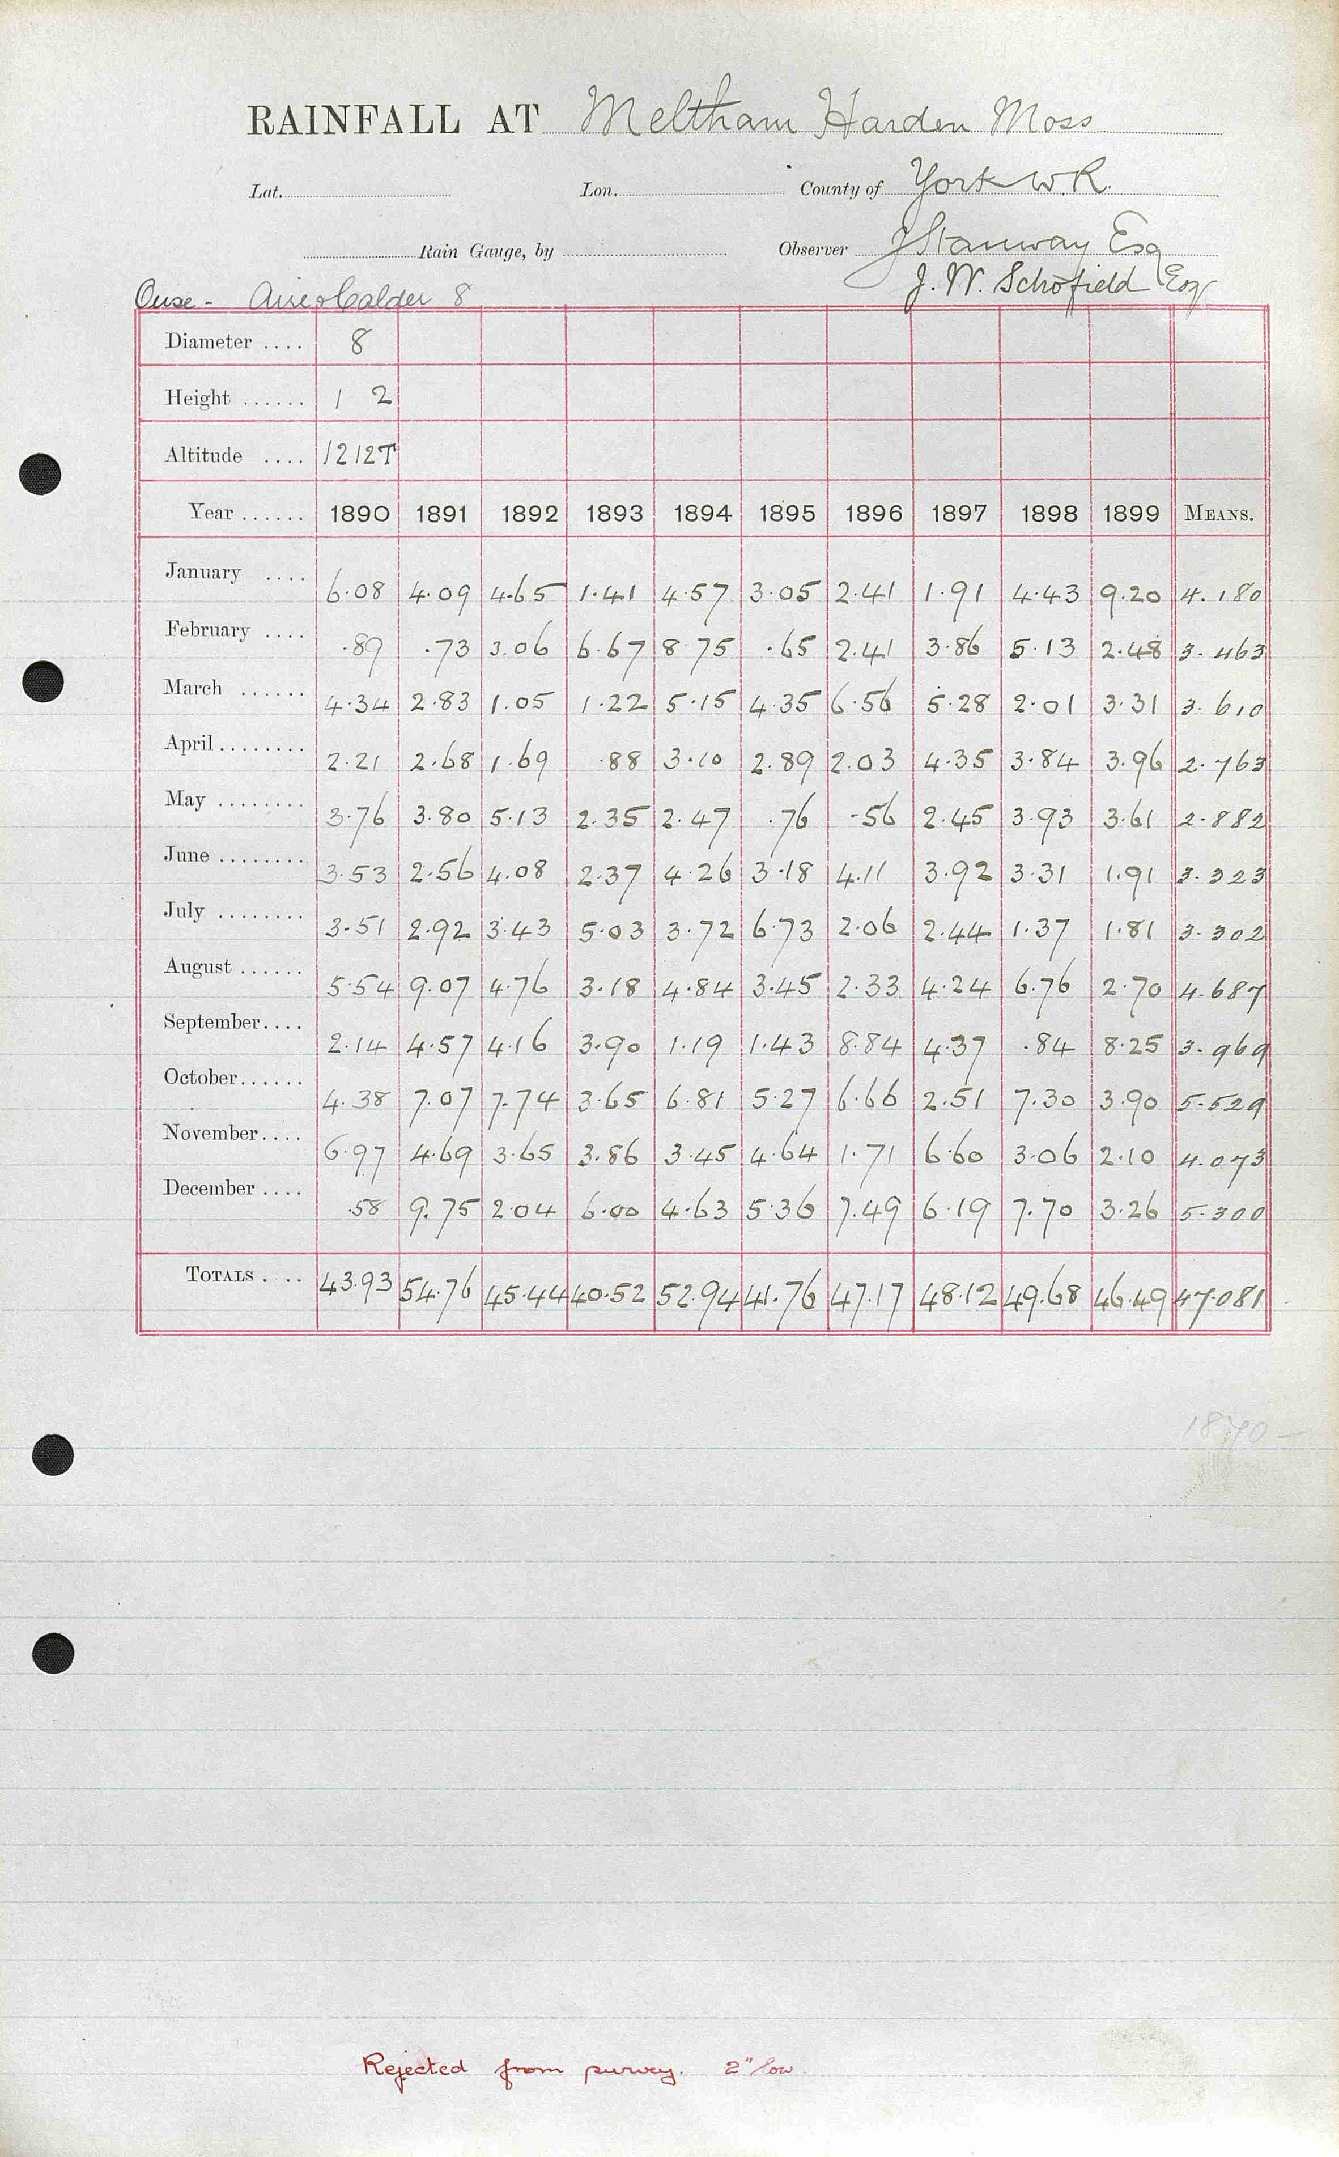 RAINFALL AT Meltham Harden Moss
Lat. Lon. County of York W.R.
Rain Gauge, by Observer J Stanway Esq
J. W. Schofield Esq
Ouse - Aire & Calder 8
Diameter .... 8
Height ...... 1 2
Altitude .... 1212T
Year ...... 1890 1891 1892 1893 1894 1895 1896 1897 1898 1899 MEANS.
January .... 6.08 4.09 4.65 1.41 4.57 3.05 2.41 1.91 4.43 9.20 4.180
February .... .89 .73 3.06 6.67 8.75 .65 2.41 3.86 5.13 2.48 3.463
March ...... 4.34 2.83 1.05 1.22 5.15 4.35 6.56 5.28 2.01 3.31 3.610
April ........ 2.21 2.68 1.69 .88 3.10 2.89 2.03 4.35 3.84 3.96 2.763
May ........ 3.76 3.80 5.13 2.35 2.47 .76 .56 2.45 3.93 3.61 2.882
June ........ 3.53 2.56 4.08 2.37 4.26 3.18 4.11 3.92 3.31 1.91 3.323
July ........ 3.51 2.92 3.43 5.03 3.72 6.73 2.06 2.44 1.37 1.81 3.302
August ...... 5.54 9.07 4.76 3.18 4.84 3.45 2.33 4.24 6.76 2.70 4.687
September .... 2.14 4.57 4.16 3.90 1.19 1.43 8.84 4.37 .84 8.25 3.969
October ...... 4.38 7.07 7.74 3.65 6.81 5.27 6.66 2.51 7.30 3.90 5.529
November .... 6.97 4.69 3.65 3.86 3.45 4.64 1.71 6.60 3.06 2.10 4.073
December .... .58 9.75 2.04 6.00 4.63 5.36 7.49 6.19 7.70 3.26 5.300
TOTALS .... 43.93 54.76 45.44 40.52 52.94 41.76 47.17 48.12 49.68 46.49 47.081
1870 -
Rejected from purvey. 2" low